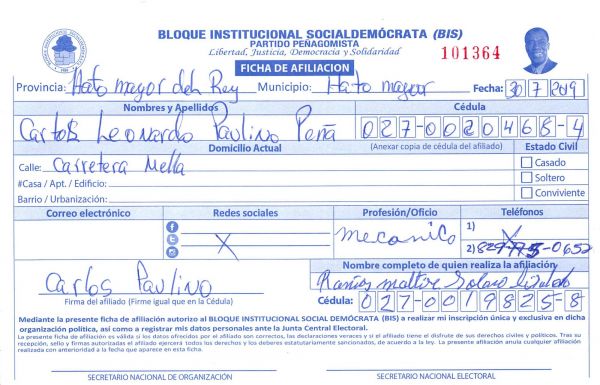 BLOQUE INSTITUCIONAL SOCIALDEMÓCRATA (BIS)
PARTIDO PEÑAGOMISTA
Libertad, Justicia, Democracia y Solidaridad
101364
FICHA DE AFILIACION
Provincia: Hato mayor del Rey Municipio: Hato mayor Fecha: 30/7/2019
Nombres y Apellidos Cédula
Carlos Leonardo Paulino Peña 027-0020465-4
Domicilio Actual (Anexar copia de cédula del afiliado) Estado Civil
Calle: Carretera Mella Casado
#Casa / Apt. / Edificio: Soltero
Barrio / Urbanización: Conviviente
Correo electrónico Redes sociales Profesión/Oficio Teléfonos
mecanico 1)
2) 829- -0652
Nombre completo de quien realiza la afiliación
Carlos Paulino Ramos
Firma del afiliado (Firme igual que en la Cédula) Cédula: 027-0019825-8
Mediante la presente ficha de afiliación autorizo al BLOQUE INSTITUCIONAL SOCIAL DEMÓCRATA (BIS) a realizar mi inscripción única y exclusiva en dicha
organización política, así como a registrar mis datos personales ante la Junta Central Electoral.
La presente ficha de afiliación es válida si los datos ofrecidos por el afiliado son correctos, las declaraciones veraces y si el afiliado tiene el disfrute de sus derechos civiles y políticos. Tras su
recepción, sello y firmas autorizadas el afiliado ejercerá todos los derechos y los deberes estatutariamente sancionados, de acuerdo a la ley. La presente afiliación anula cualquier afiliación
realizada con anterioridad a la fecha que aparece en esta ficha.
SECRETARIO NACIONAL DE ORGANIZACIÓN SECRETARIO NACIONAL ELECTORAL